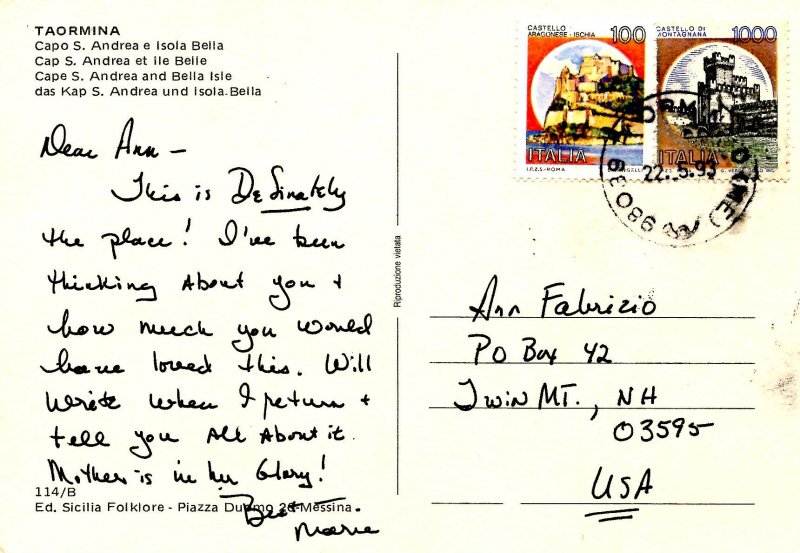 TAORMINA
Capo S. Andrea e Isola Bella
Cap S. Andrea et île Belle
Cape S. Andrea and Bella Isle
das Kap S. Andrea und Isola Bella
Dear Ann –
This is Definately
the place! I've been
thinking About you +
how much you would
have loved this. Will
write when I return +
tell you All About it.
Mother is in her Glory!
Best
Marie
114/B
Ed. Sicilia Folklore - Piazza Duomo 26-Messina.
Riproduzione vietata
CASTELLO
ARAGONESE - ISCHIA
100
ITALIA
I.P.Z.S. - ROMA
CASTELLO DI
MONTAGNANA
1000
ITALIA
22.5.93
98039
Ann Fabrizio
PO Box 42
Twin MT., NH
03595
USA